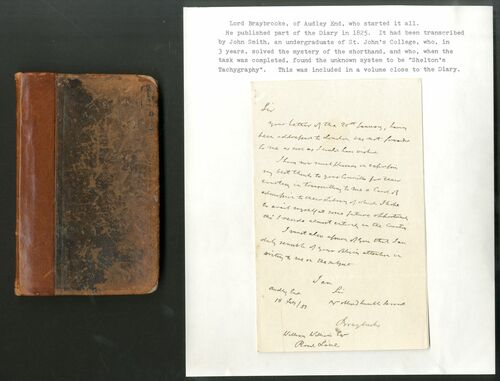 Lord Braybrooke, of Audley End, who started it all.
He published part of the Diary in 1825. It had been transcribed
by John Smith, an undergraduate of St. John's College, who, in
3 years, solved the mystery of the shorthand, and who, when the
task was completed, found the unknown system to be "Shelton's
Tachygraphy". This was included in a volume close to the Diary.
Sir
Your letter of the 20th January, having
been addressed to London was not
to me as soon as I could have wished
I have now much pleasure in
my best thanks to your Committee for their
in transmitting to me a Card of
admission to their Library of which I hope
to avail myself at some future
this I reside almost entirely in the Country
I must also assure you that I am
duly sensible of your obliging attention in
writing to me on the subject
I am
Audley End
Sir
Braybrooke
William